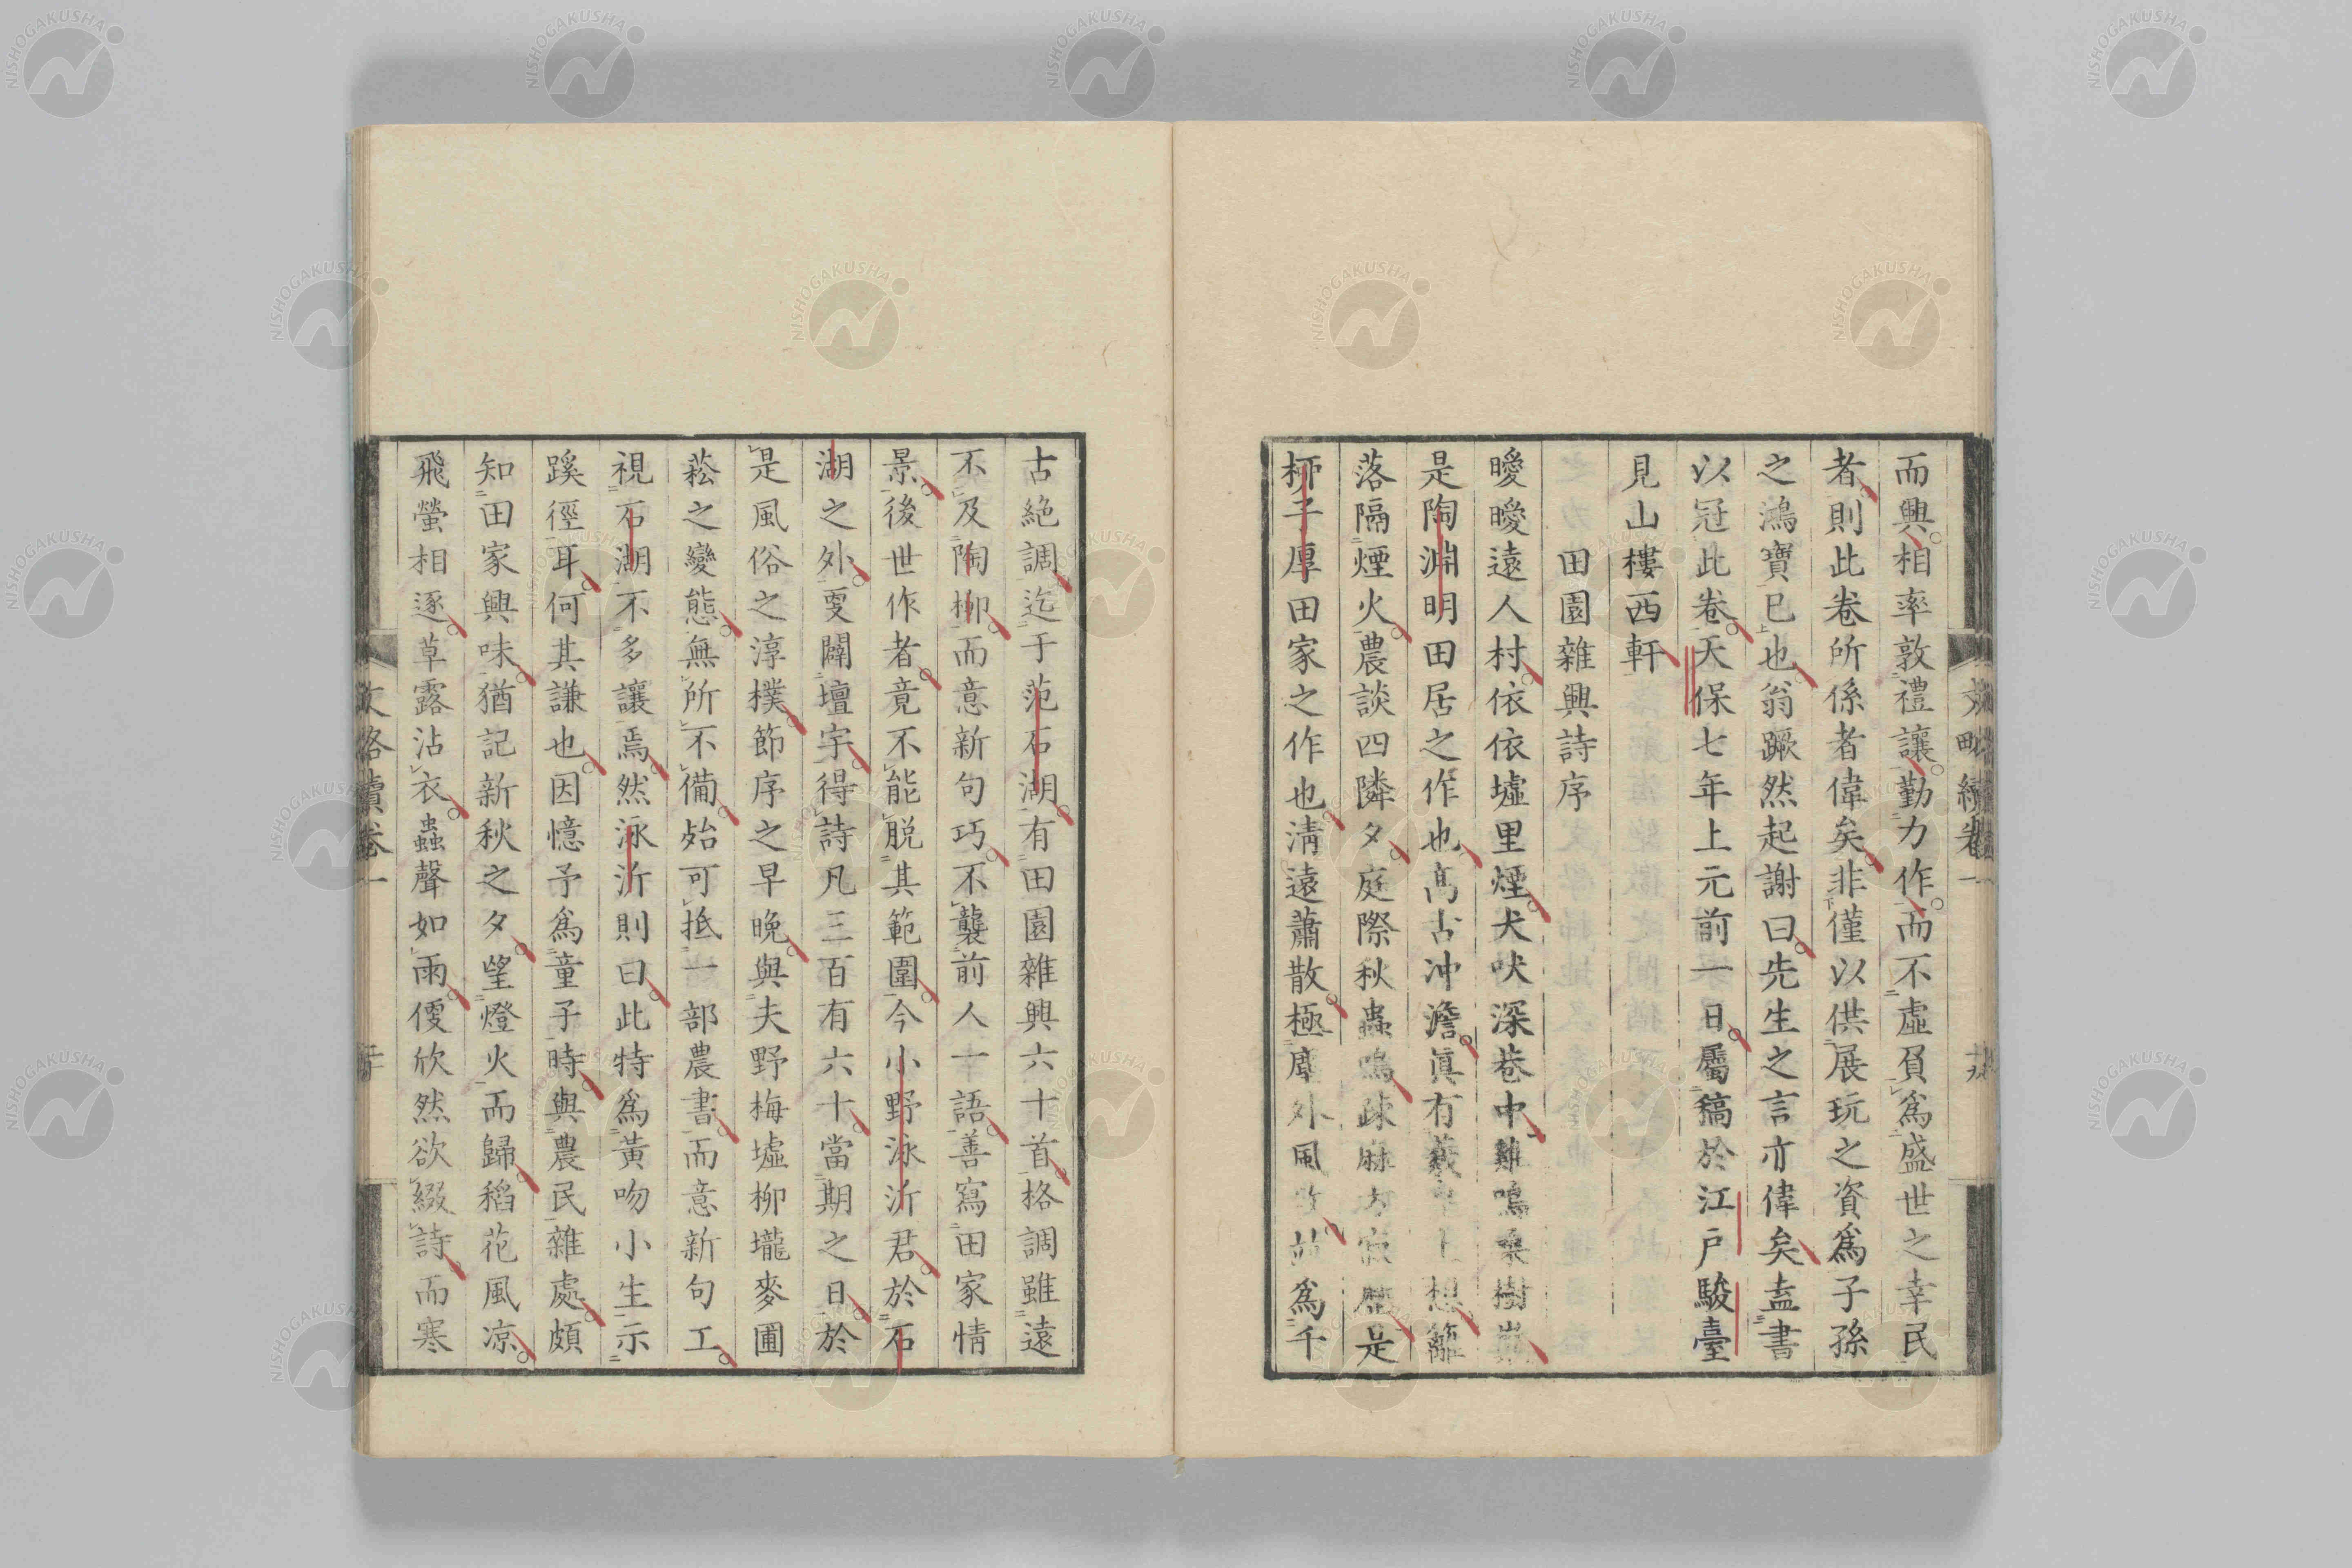 而興相率敦禮讓勤力作而不虛負爲盛世之幸民
者則此卷所係者偉矣非僅以供展玩之資爲子孫
之鴻寶已也翁蹶然起謝曰先生之言亦偉矣盍書
以冠此卷天保七年上元前一日屬稿於江戸駿臺
見山樓西軒
田園雜興詩序
曖曖遠人村依依墟里煙犬吠深巷中雞鳴桑樹巓
是陶淵明田居之作也高古冲澹眞有羲皇上想籬
落隔煙火農談四隣夕庭際秋蟲鳴疎麻方寂歷是
柳子厚田家之作也淸遠蕭散極塵外風致竝爲千
古絕調迄于范石湖有田園雜興六十首格調雖遠
不及陶柳而意新句巧不襲前人一語善寫田家情
景後世作者竟不能脱其範圍今小野泳沂君於石
湖之外更闢壇宇得詩凡三百有六十當期之日於
是風俗之淳樸節序之早晩與夫野梅墟柳壠麥圃
菘之變態無所不備殆可抵一部農書而意新句工
視石湖不多讓焉然泳沂則曰此特爲黃吻小生示
蹊徑耳何其謙也因憶予爲童子時與農民雜處頗
知田家興味猶記新秋之夕望燈火而歸稻花風凉
飛螢相逐草露沾衣蟲聲如雨便欣然欲綴詩而寒
文略續卷一
NISHOGAKUSHA